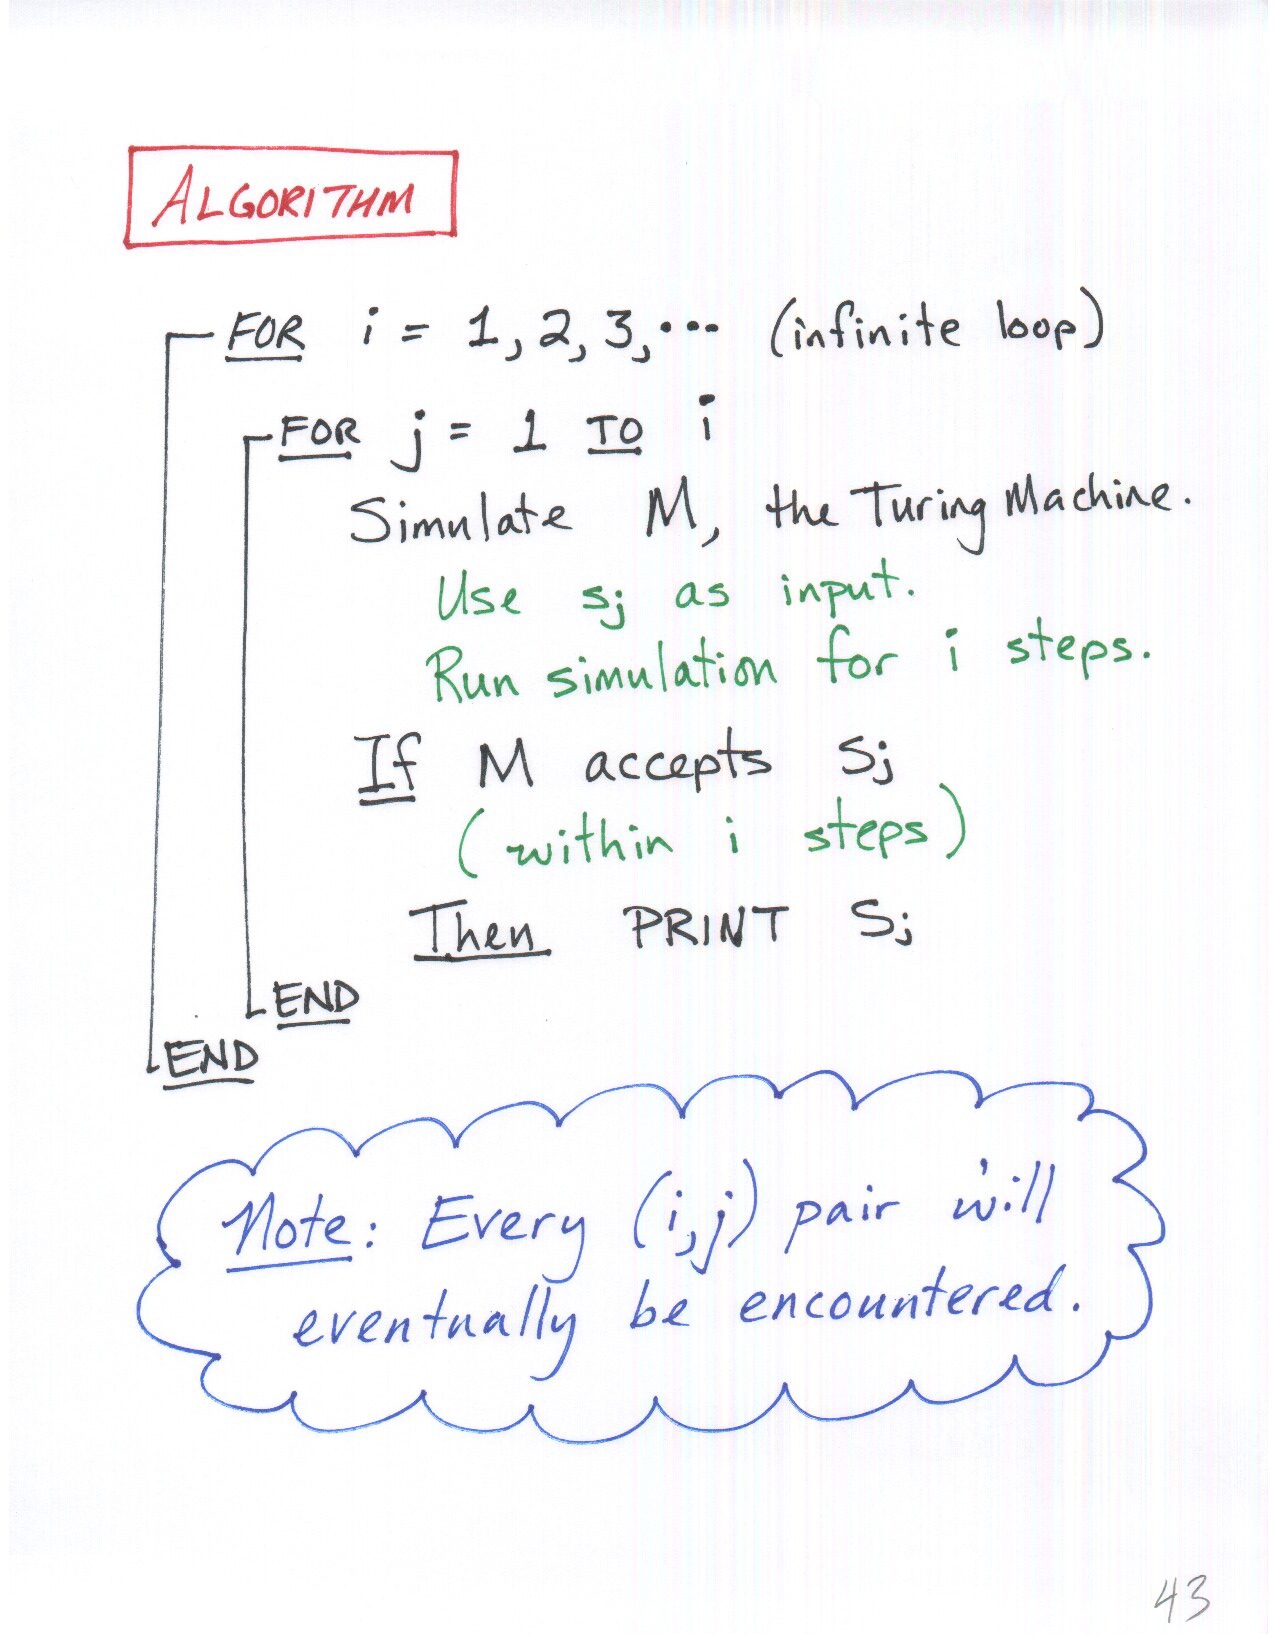 ALGORITHM
FOR i = 1, 2, 3, ··· (infinite loop)
FOR j = 1 TO i
Simulate M, the Turing Machine.
Use sj as input.
Run simulation for i steps.
If M accepts Sj
(within i steps)
Then PRINT Sj
END
END
Note: Every (i,j) pair will
eventually be encountered.
43